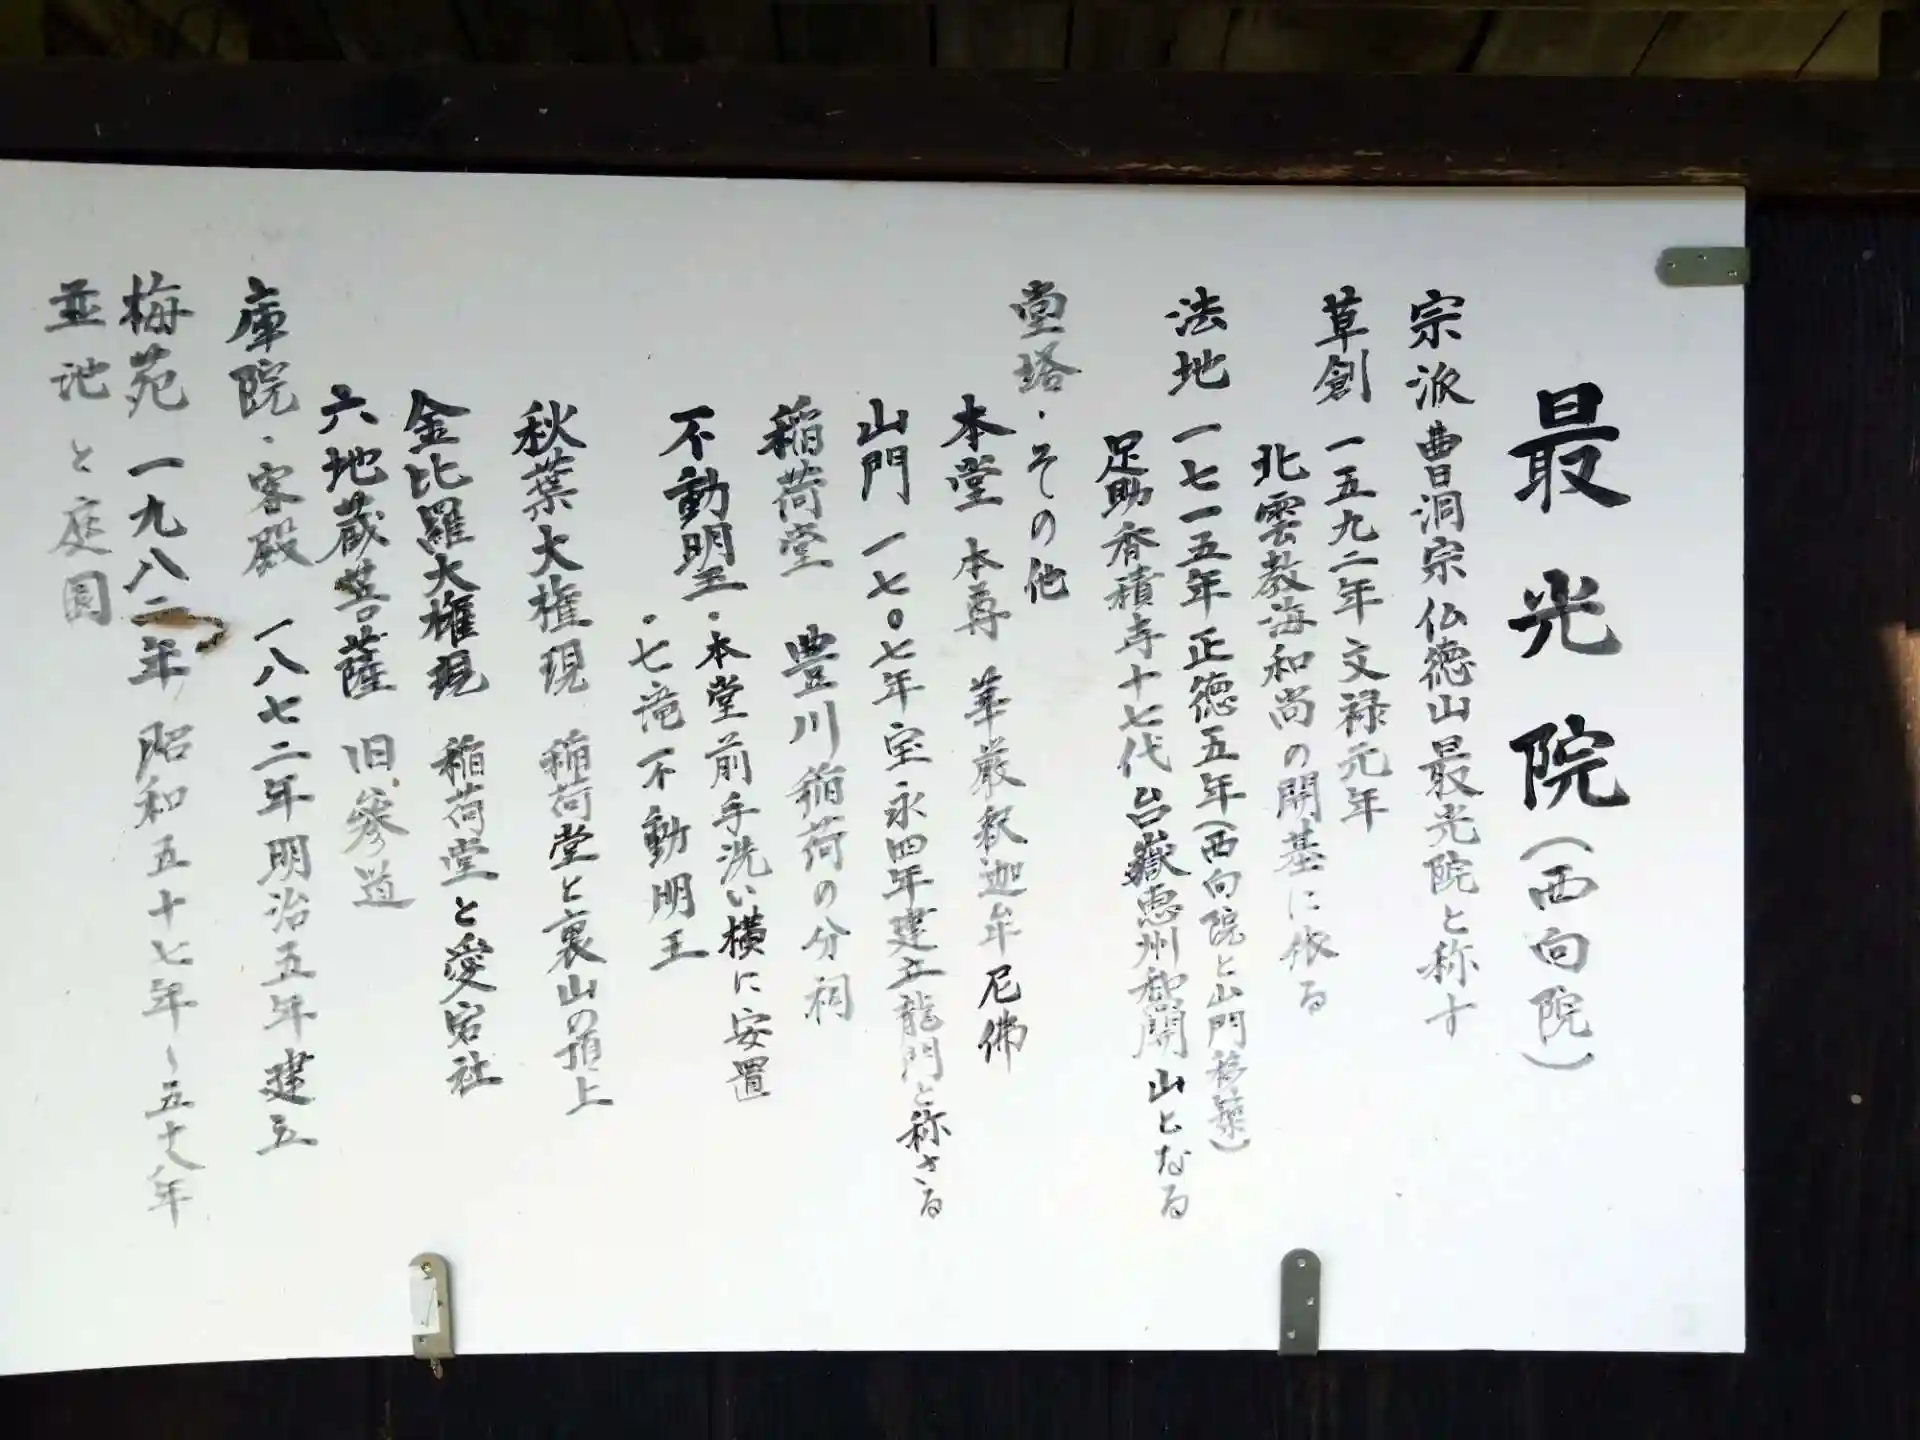 最光院(西向院)
宗派 曹洞宗 仏徳山最光院と称す
草創 一五九二年文禄元年
北雲教海和尚の開基に依る
法地 一七一五年正徳五年(西向院と山門移築)
足助香積寺十七代 台嶽恵州和尚開山となる
堂塔・その他
本堂 本尊 華厳釈迦牟尼佛
山門 一七〇七年宝永四年建立龍門と称さる
稲荷堂 豊川稲荷の分祠
不動明王・本堂前手洗い横に安置
・七滝不動明王
秋葉大権現 稲荷堂と裏山の頂上
金比羅大権現 稲荷堂と愛宕社
六地蔵菩薩 旧参道
庫院・客殿 一八七二年明治五年建立
梅苑 一九八二年 昭和五十七年~五十八年
並池と庭園